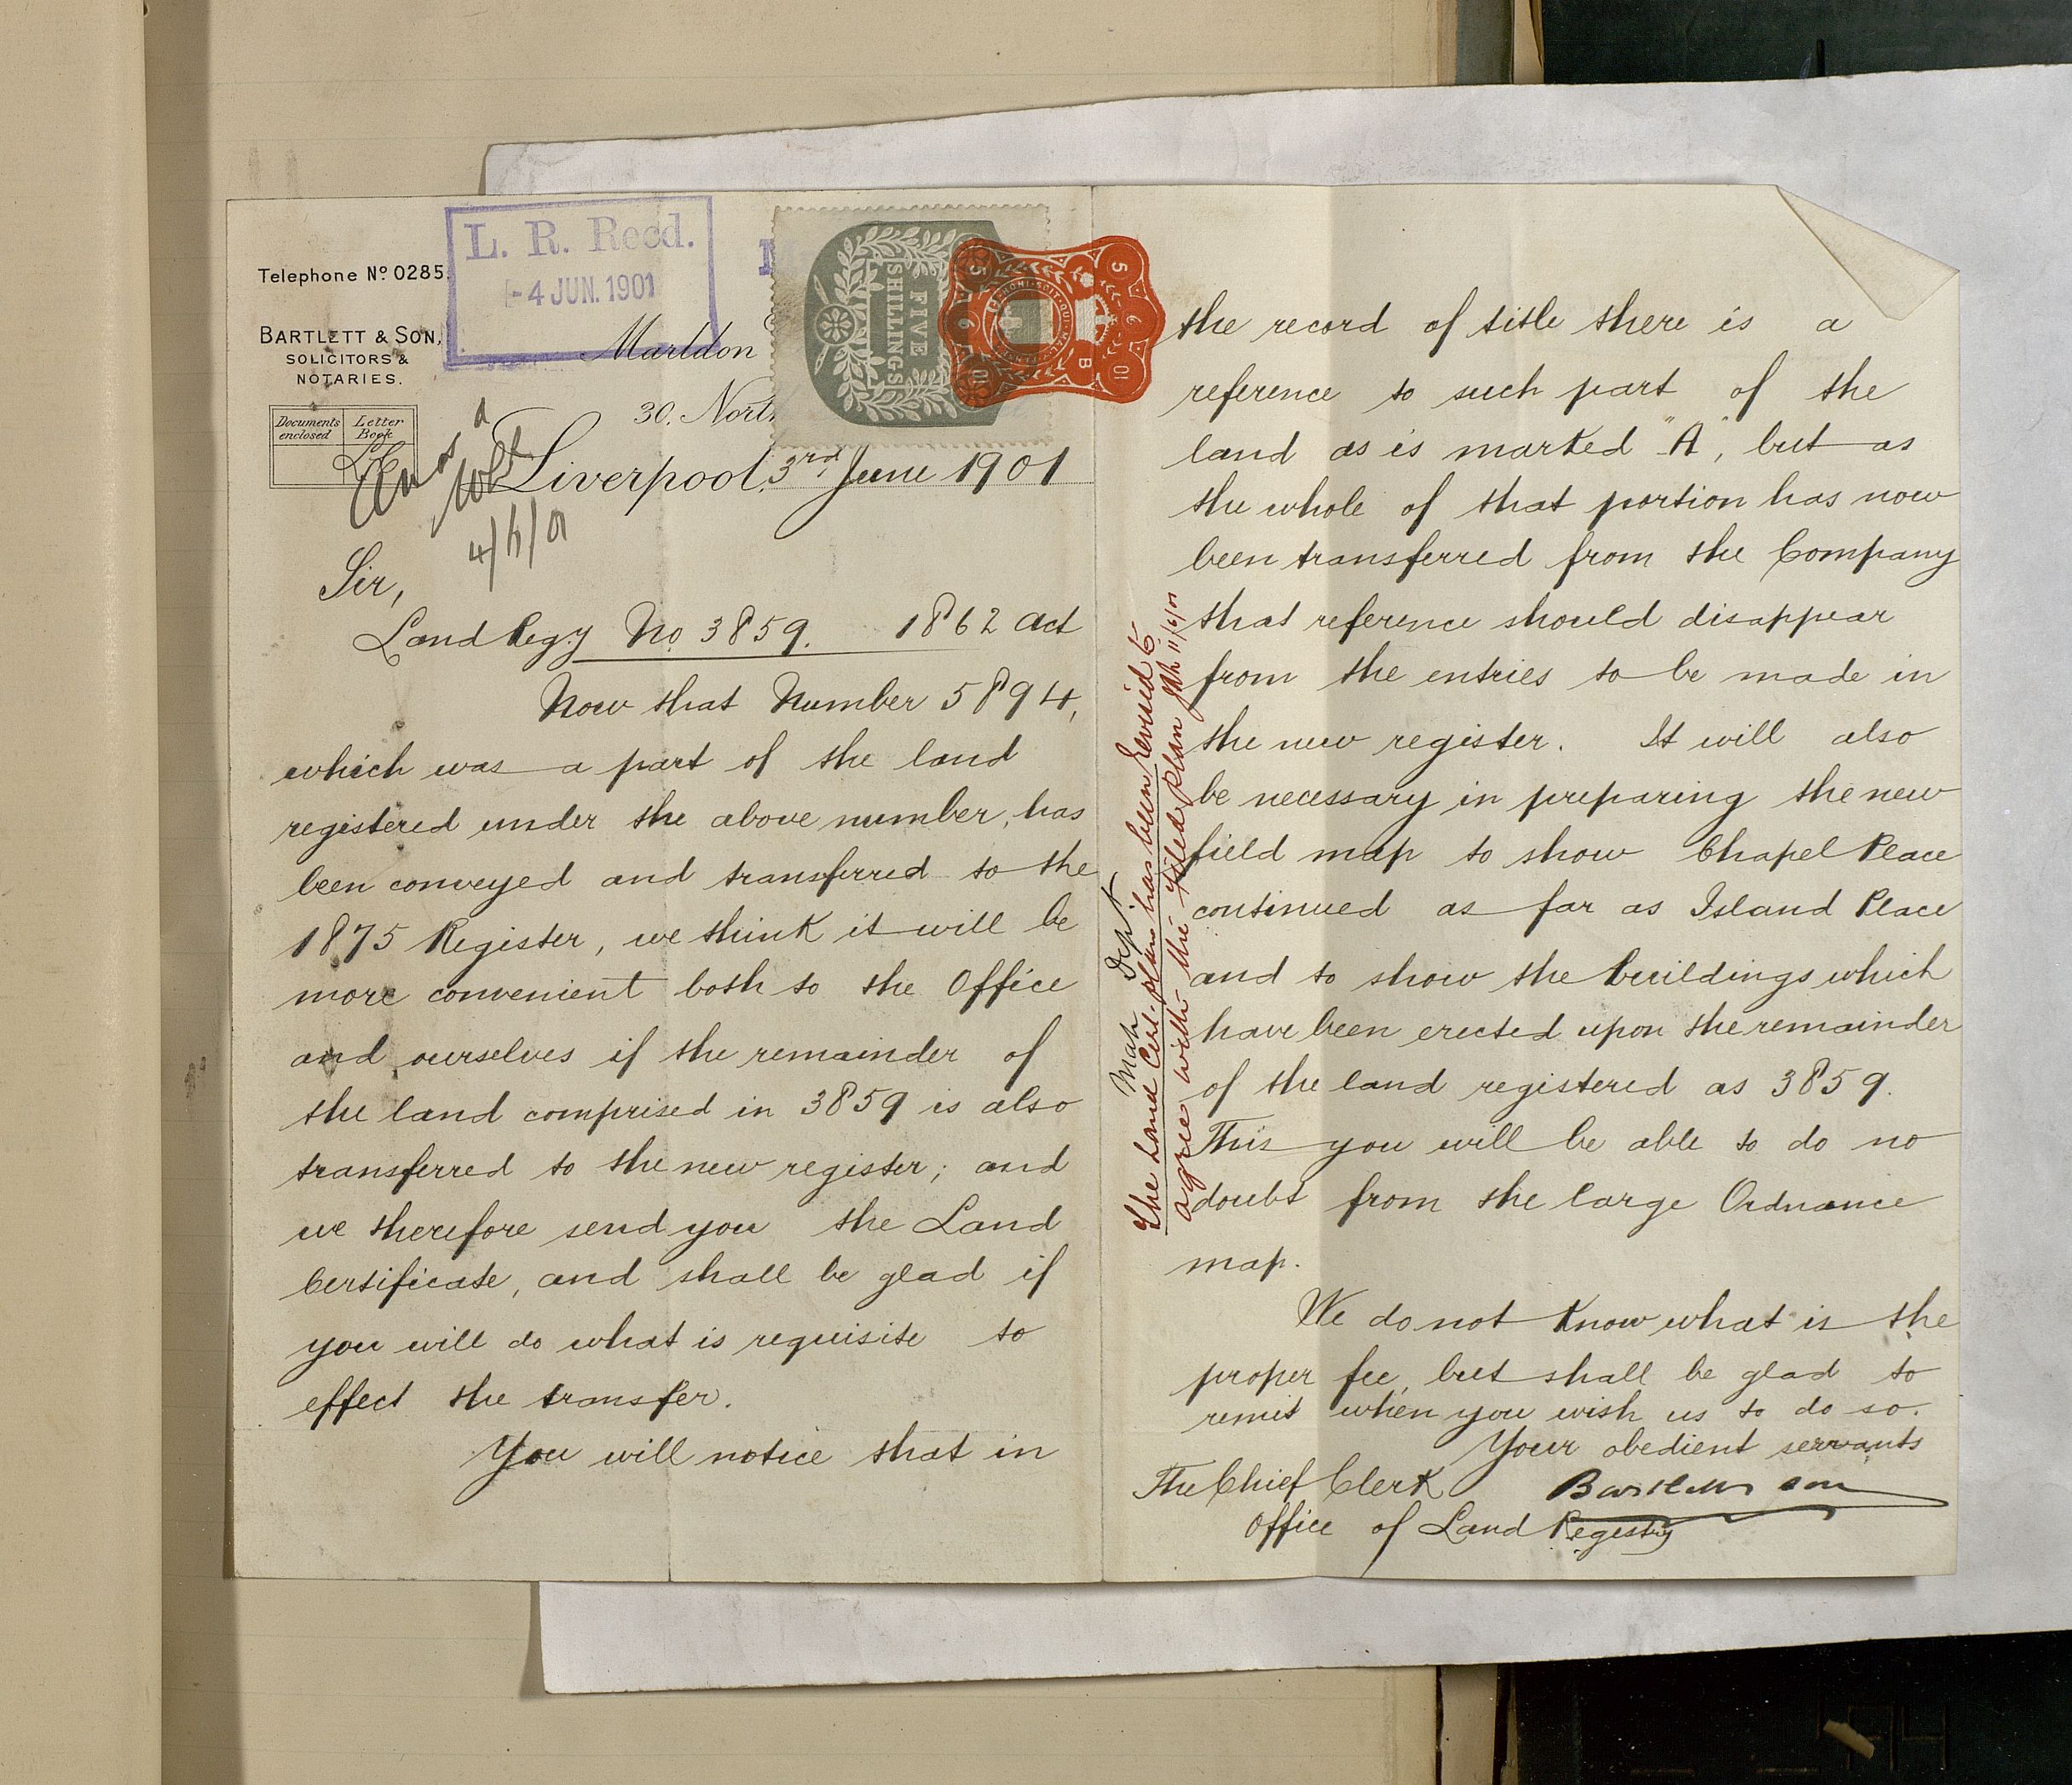 L. R. Recd.
-4 JUN. 1901
Telephone No. 0285.
BARTLETT & SON,
SOLICITORS &
NOTARIES.
Documents enclosed
Letter Book
Marldon
30, North
FIVE SHILLINGS
HONI·SOIT·QUI·MAL
B
5
6
01
Liverpool, 3rd June 1901
4/6/01
Sir,
Land Regy No 3859. 1862 Act
Now that Number 5894,
which was a part of the land
registered under the above number, has
been conveyed and transferred to the
1875 Register, we think it will be
more convenient both to the Office
and ourselves if the remainder of
the land comprised in 3859 is also
transferred to the new register; and
we therefore send you the Land
Certificate, and shall be glad if
you will do what is requisite to
effect the transfer.
You will notice that in
the record of title there is a
reference to such part of the
land as is marked "A", but as
the whole of that portion has now
been transferred from the Company
that reference should disappear
from the entries to be made in
the new register. It will also
be necessary in preparing the new
field map to show Chapel Place
continued as far as Island Place
and to show the buildings which
have been erected upon the remainder
of the land registered as 3859.
This you will be able to do no
doubt from the large Ordnance
map.
We do not know what is the
proper fee, but shall be glad to
remit when you wish us to do so.
Your obedient servants
Bartlett & Son
The Chief Clerk
Office of Land Registry
Map Dept
The Land Cert. plan has been revised to
agree with the filed plan 11/6/01